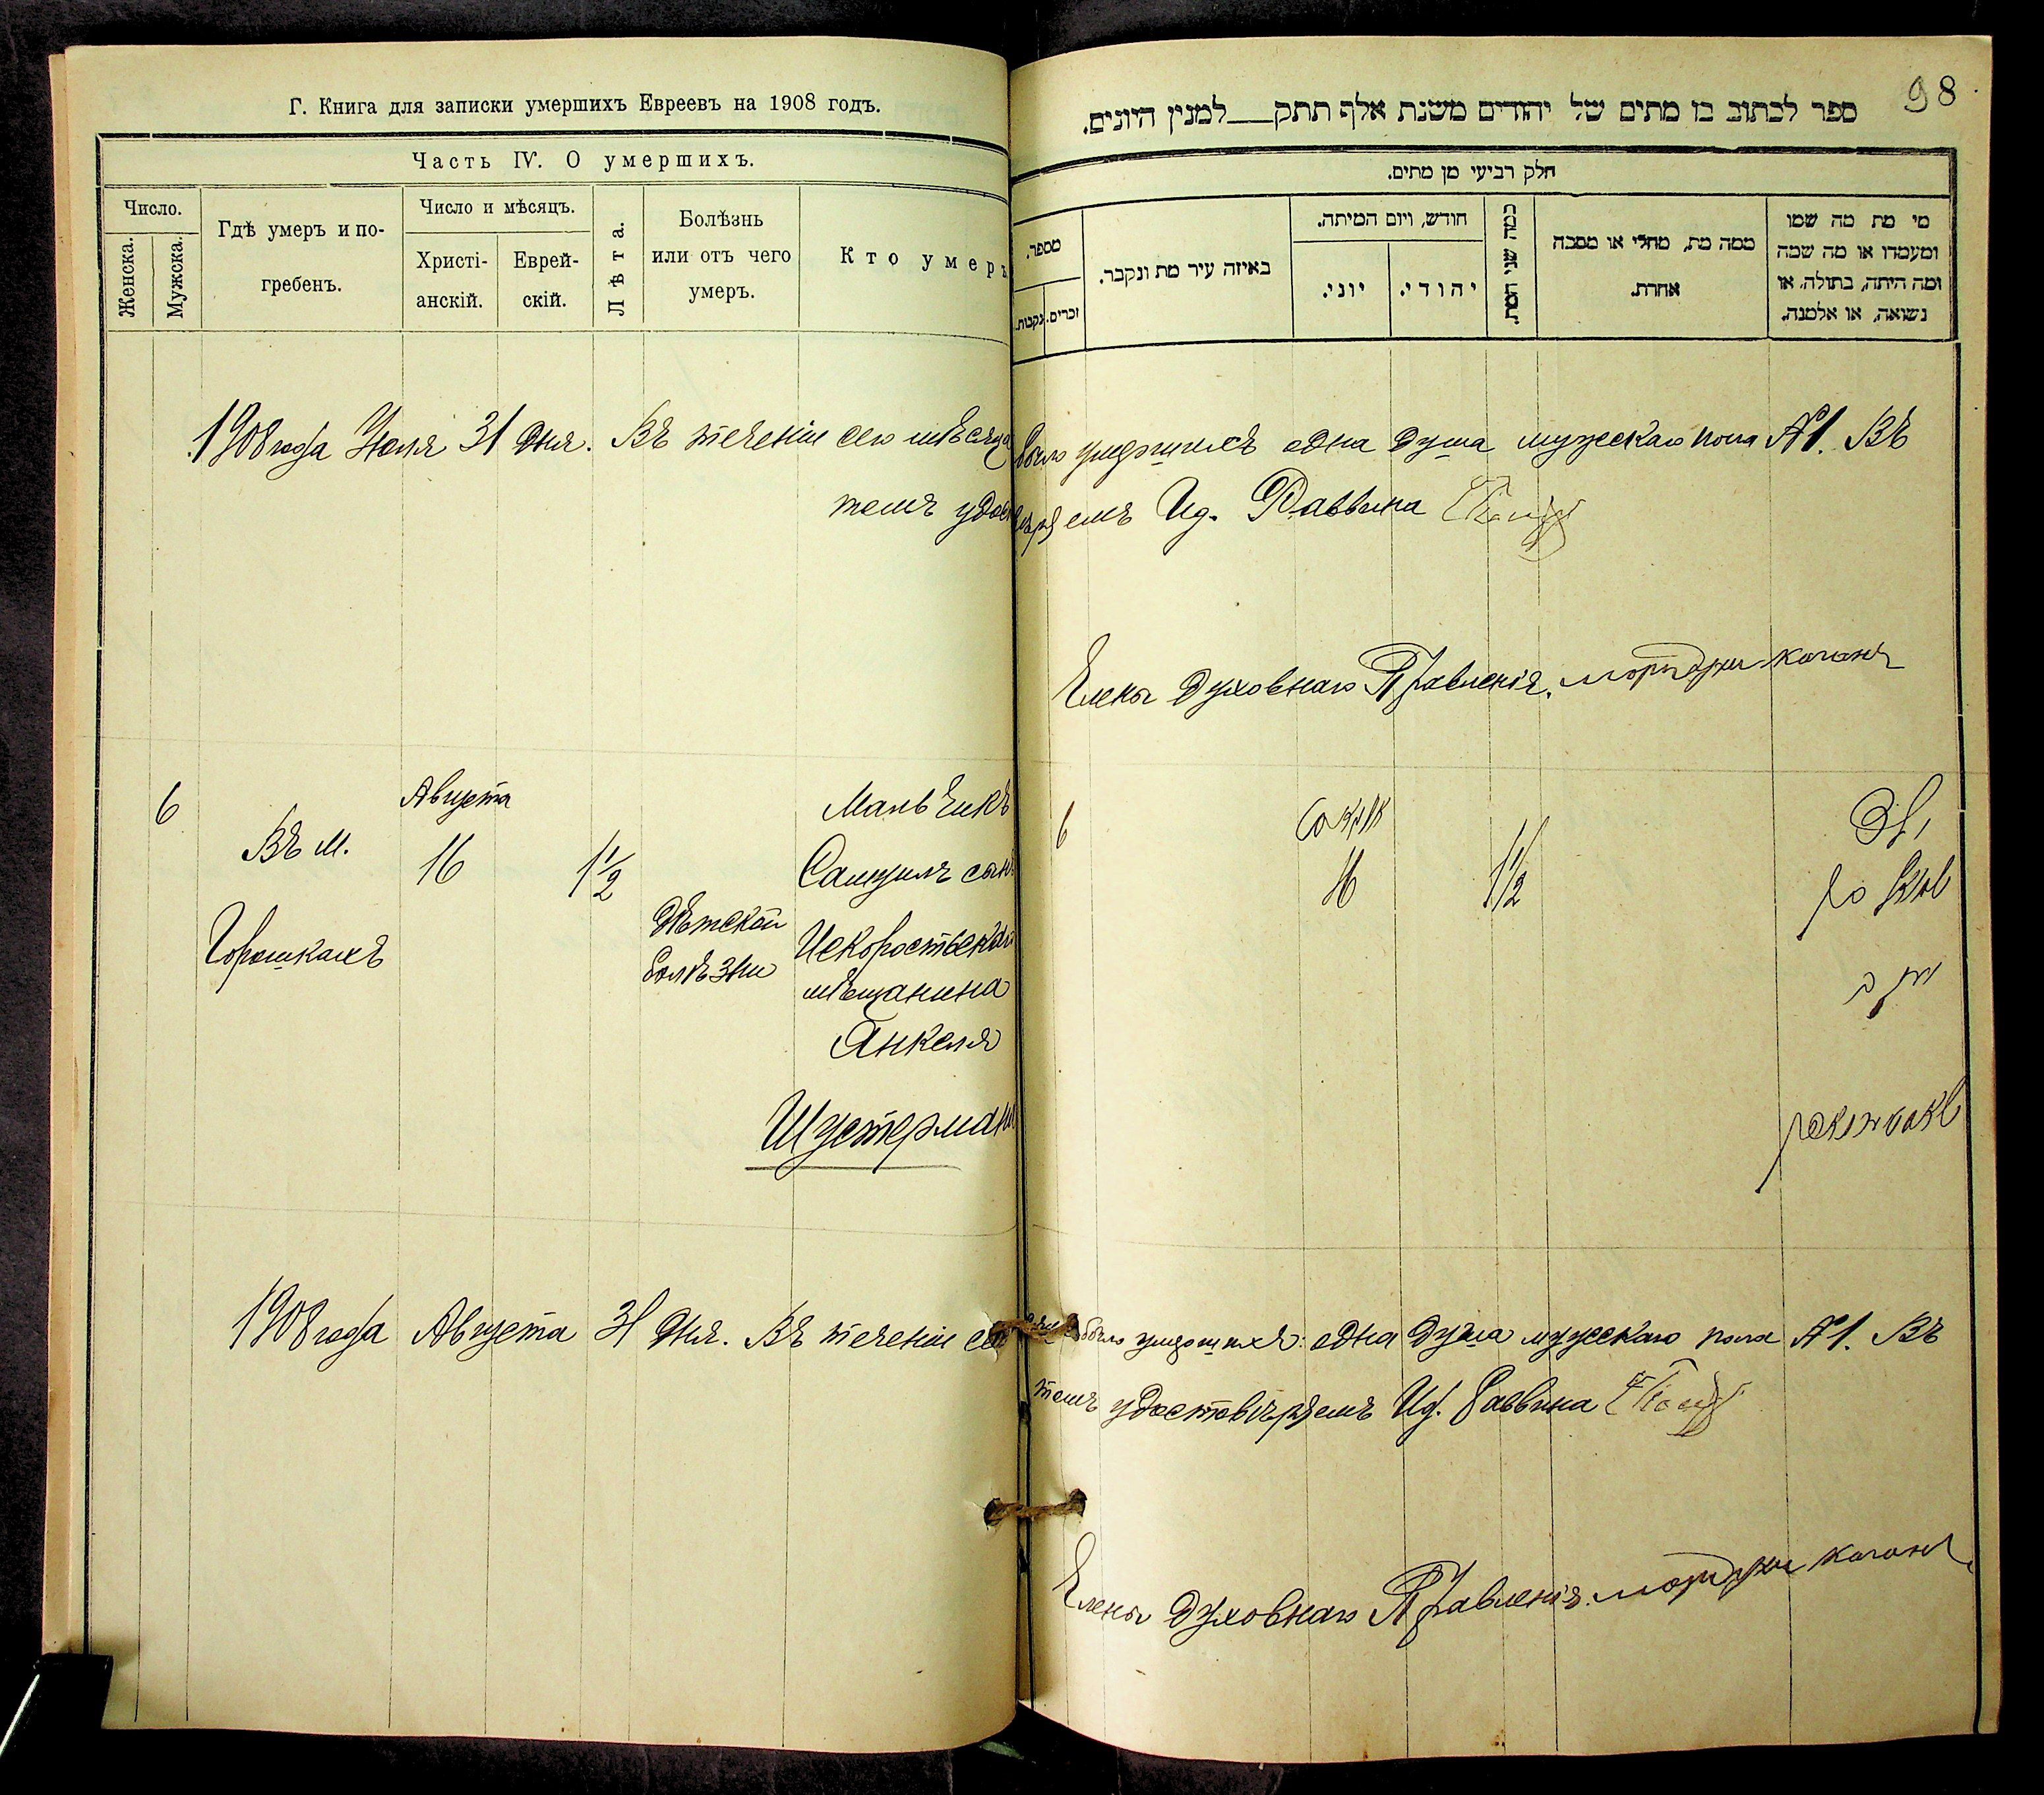 Г. Книга для записки умершихъ Евреевъ на 1908 годъ.
Часть IV. О умершихъ.
Число.
Женска.
Мужска.
Гдѣ умеръ и по-
гребенъ.
Число и мѣсяцъ.
Христі-
анскій.
Еврей-
скій.
Лѣта.
Болѣзнь
или отъ чего
умеръ.
Кто умеръ
98
ספר לכתוב בו מתים של יהודים משנת אלף תתק למנין היונים.
חלק רביעי מן מתים.
מספר.
נקבות.
זכרים.
באיזה עיר מת ונקבר.
חודש, ויום המיתה.
יוני.
יהודי.
כמה שני המת.
ממה מת, מחלי או מסבה
אחרת.
מי מת מה שמו
ומעמדו או מה שמה
ומה היתה, בתולה, או
נשואה, או אלמנה.
1908 года Іюля 31 дня. Въ теченіи сего мѣсяца было умершихъ одна душа мужскаго пола №1. Въ
темъ удостовѣряемъ Ид. Раввина
Члены Духовнаго Правленія. мордухъ коганъ
6
Въ м.
Горошкахъ
Августа
16
1 1/2
Дѣтской
болѣзни
Мальчикъ
Самуилъ сынъ
Искоростьскаго
мѣщанина
Янкеля
Шустермана
6
16
1 1/2
1908 года Августа 31 дня. Въ теченіи сего мѣсяца было умершихъ: одна душа мужскаго пола №1. Въ
темъ удостовѣряемъ Ид. Раввина
Члены Духовнаго Правленія. мордухъ коганъ